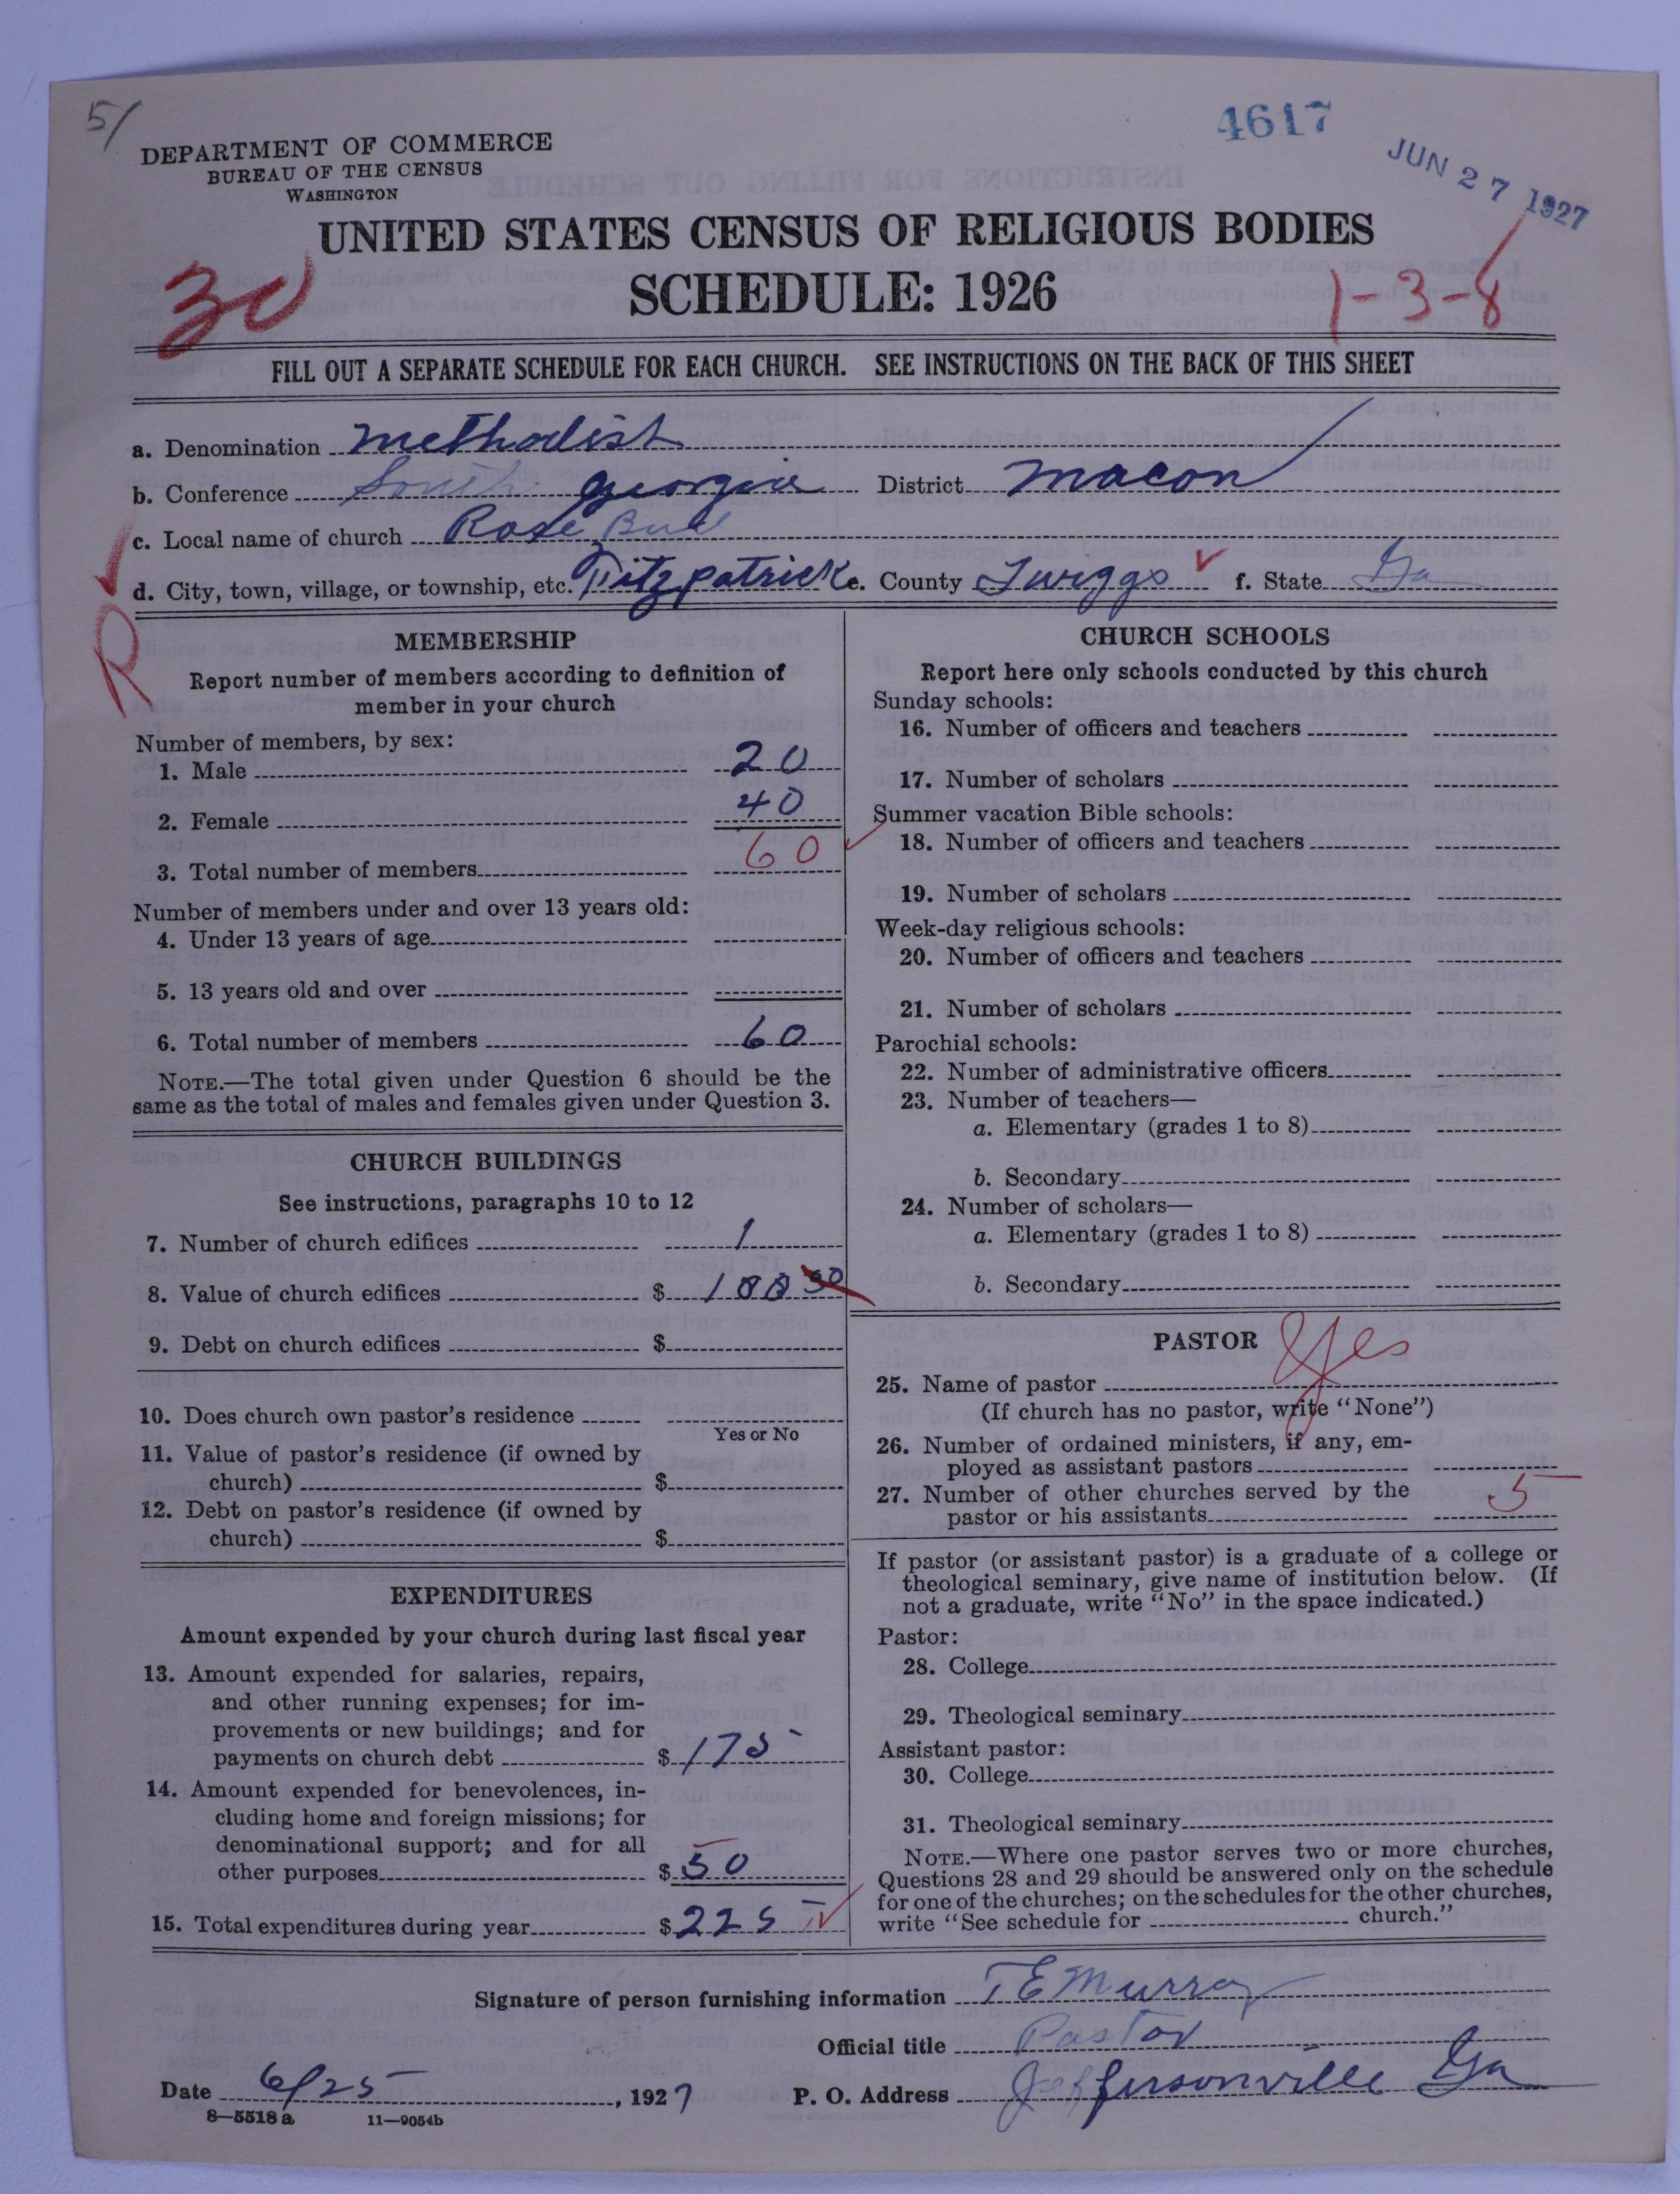 51
4617
JUN 27 1927
DEPARTMENT OF COMMERCE
BUREAU OF THE CENSUS
WASHINGTON
UNITED STATES CENSUS OF RELIGIOUS BODIES
SCHEDULE: 1926
30
1-3-8
FILL OUT A SEPARATE SCHEDULE FOR EACH CHURCH. SEE INSTRUCTIONS ON THE BACK OF THIS SHEET
a. Denomination Methodist
b. Conference South Georgia District Macon
c. Local name of church Rose Bud
d. City, town, village, or township, etc. Fitzpatrick e. County Twiggs f. State Ga
R
MEMBERSHIP
Report number of members according to definition of
member in your church
Number of members, by sex:
1. Male 20
2. Female 40
3. Total number of members 60
Number of members under and over 13 years old:
4. Under 13 years of age
5. 13 years old and over
6. Total number of members 60
NOTE.—The total given under Question 6 should be the
same as the total of males and females given under Question 3.
CHURCH BUILDINGS
See instructions, paragraphs 10 to 12
7. Number of church edifices 1
8. Value of church edifices $
9. Debt on church edifices $
10. Does church own pastor's residence
Yes or No
11. Value of pastor's residence (if owned by
church) $
12. Debt on pastor's residence (if owned by
church) $
EXPENDITURES
Amount expended by your church during last fiscal year
13. Amount expended for salaries, repairs,
and other running expenses; for im-
provements or new buildings; and for
payments on church debt $ 175
14. Amount expended for benevolences, in-
cluding home and foreign missions; for
denominational support; and for all
other purposes $ 50
15. Total expenditures during year $ 225
CHURCH SCHOOLS
Report here only schools conducted by this church
Sunday schools:
16. Number of officers and teachers
17. Number of scholars
Summer vacation Bible schools:
18. Number of officers and teachers
19. Number of scholars
Week-day religious schools:
20. Number of officers and teachers
21. Number of scholars
Parochial schools:
22. Number of administrative officers
23. Number of teachers—
a. Elementary (grades 1 to 8)
b. Secondary
24. Number of scholars—
a. Elementary (grades 1 to 8)
b. Secondary
PASTOR
25. Name of pastor Yes
(If church has no pastor, write "None")
26. Number of ordained ministers, if any, em-
ployed as assistant pastors
27. Number of other churches served by the
pastor or his assistants 5
If pastor (or assistant pastor) is a graduate of a college or
theological seminary, give name of institution below. (If
not a graduate, write "No" in the space indicated.)
Pastor:
28. College
29. Theological seminary
Assistant pastor:
30. College
31. Theological seminary
NOTE.—Where one pastor serves two or more churches,
Questions 28 and 29 should be answered only on the schedule
for one of the churches; on the schedules for the other churches,
write "See schedule for church."
Signature of person furnishing information T E Murray
Official title Pastor
Date 6/25, 1927 P. O. Address Jeffersonville Ga
8—5518 a 11—9054b